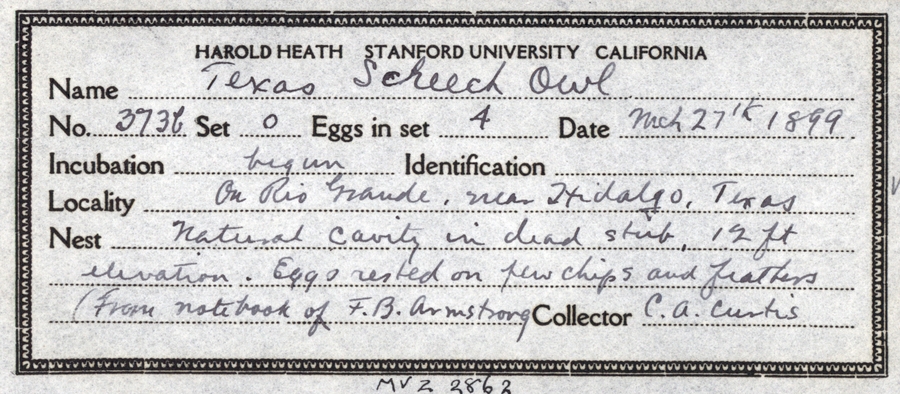 HAROLD HEATH STANFORD UNIVERSITY CALIFORNIA
Name Texas Screech Owl
No. 373b Set 0 Eggs in set 4 Date Mch 27th 1899
Incubation begun Identification
Locality On Rio Grande, near Hidalgo, Texas
Nest Natural cavity in dead stub, 12 ft
elevation. Eggs rested on few chips and feathers
(From notebook of F.B. Armstrong Collector C.A. Curtis
MVZ 2862